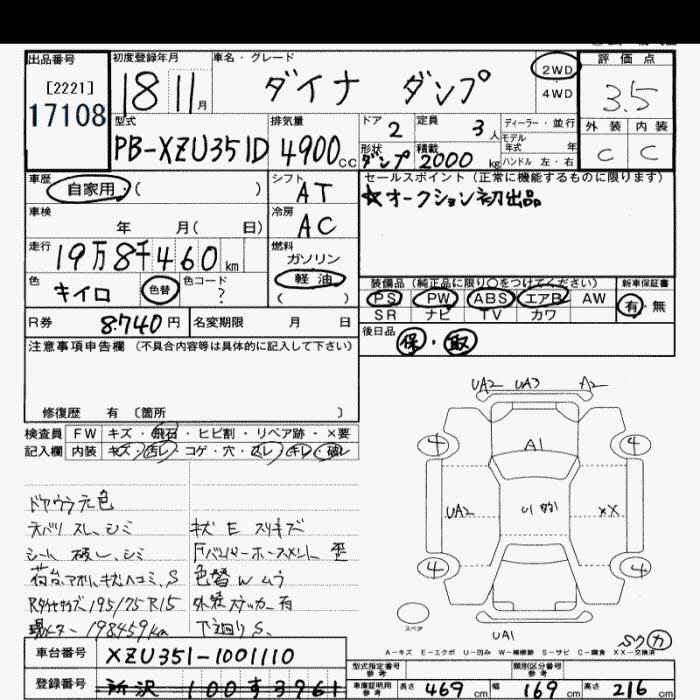 出品番号
[2221]
17108
初度登録年月
18 11月
車名・グレード
ダイナ ダンプ
2WD
4WD
評価点
3.5
外装 内装
C C
型式
PB-XZU351D
排気量
4900cc
ドア
2
定員
3人
形状
ダンプ
積載
2000kg
ディーラー・並行
モデル年式 年
ハンドル 左・右
車歴
自家用・( )
シフト
AT
セールスポイント (正常に機能するものに限ります)
★オークション初出品
車検
年 月( 日)
冷房
AC
走行
19万8千460km
燃料
ガソリン
軽油
( )
色
キイロ
色替
色コード
?
装備品 (純正品に限り○をつけてください)
PS PW ABS エアB AW
SR ナビ TV カワ
新車保証書
有・無
R券
8740円
名変期限 月 日
後日品
保・取
注意事項申告欄 (不具合内容等は具体的に記入して下さい)
修復歴 有 (箇所 )
検査員記入欄
FW キズ・飛石・ヒビ割・リペア跡・×要
内装 キズ・汚レ・コゲ・穴・スレ・キレ・破レ
ドアウラ元色
天バリ スレ、シミ
シート 破レ、シミ
荷台、アオリ、キズヘコミ、S
Rタイヤサイズ195/75R15
現メーター198459km
キズ E スリキズ
Fバンパーホースメント 歪
色替 W ムラ
外装 ステッカー有
下廻り S、
UA2 UA3 A2
A1
4 4
UA2
XX
4 4
スペア
UA1
A-キズ E-エクボ U-凹み W-補修跡 S-サビ C-腐食 XX-交換済
車台番号
XZU351-1001110
登録番号
所沢 100す3961
型式指定番号
参考
類別区分番号
参考
車庫証明用
参考
長さ 469cm 幅 169cm 高さ 216cm